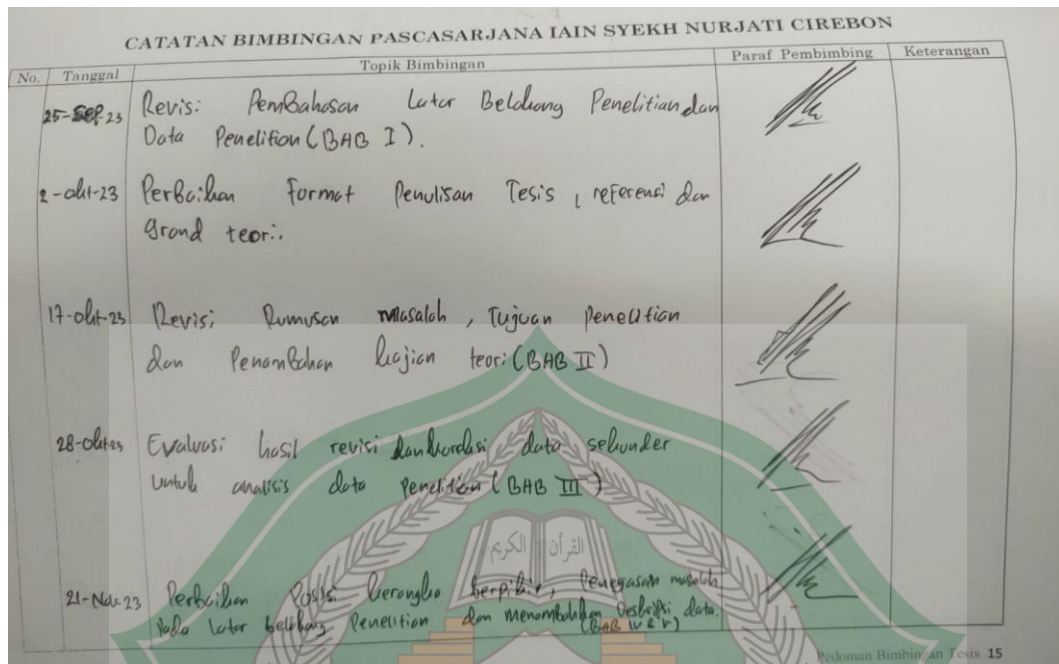 CATATAN BIMBINGAN PASCASARJANA IAIN SYEKH NURJATI CIREBON
No. Tanggal Topik Bimbingan Paraf Pembimbing Keterangan
25-SEP-23 Revisi Pembahasan Latar Belakang Penelitian dan
Data Penelitian (BAB I).
2-okt-23 Perbaikan format Penulisan Tesis, referensi dan
grand teori.
17-okt-23 Revisi Rumusan Masalah, Tujuan Penelitian
dan Penambahan kajian teori (BAB II)
28-okt-23 Evaluasi hasil revisi dan data sekunder
untuk analisis data Penelitian (BAB III)
القرآن الكريم
21-Nov-23 Perbaikan Posisi kerangka berpikir, Penegasan masalah
Pada Latar belakang Penelitian dan menambahkan Deskripsi data.
(BAB IV & V)
Pedoman Bimbingan Tesis 15